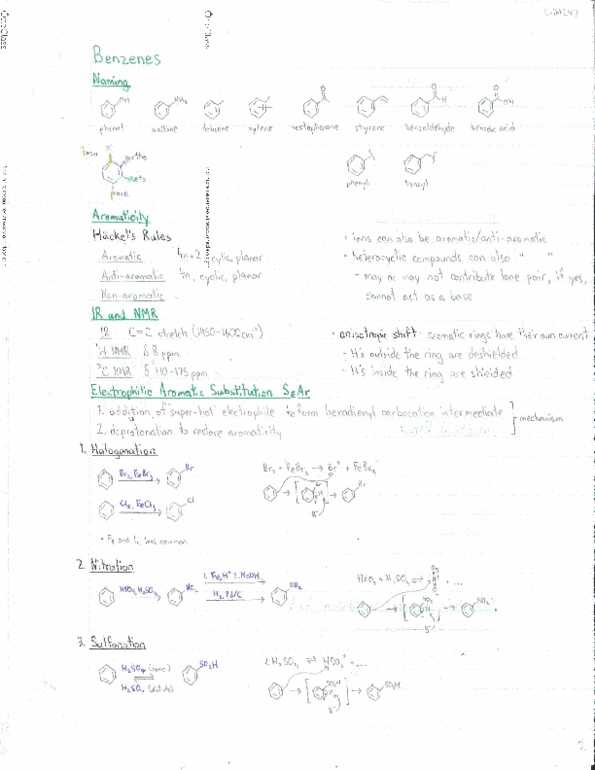 Benzenes
Naming
phenol aniline toluene xylene acetophenone styrene benzaldehyde benzoic acid
X
Ortho
Meta
Para
phenyl benzyl
Aromaticity
Hückel's Rules
Aromatic 4n+2, cyclic, planar
Anti-aromatic 4n, cyclic, planar
Non-aromatic
• ions can also be aromatic/anti-aromatic
• heterocyclic compounds can also " "
- may or may not contribute lone pair, if yes,
cannot act as a base
IR and NMR
IR C=C stretch (1450-1600cm⁻¹)
¹H NMR δ 8 ppm
¹³C NMR δ 110-175 ppm
• anisotropic shift: aromatic rings have their own current
- H's outside the ring are deshielded
- H's inside the ring are shielded
Electrophilic Aromatic Substitution SEAr
1. addition of "super-hot" electrophile to form hexadienyl carbocation intermediate
2. deprotonation to restore aromaticity
mechanism
1. Halogenation
Br₂, FeBr₃ Br
Br₂ + FeBr₃ → Br⁺ + FeBr₄⁻
Cl₂, FeCl₃ Cl
• F₂ and I₂ less common
2. Nitration
HNO₃, H₂SO₄ NO₂
H₂, Pd/C NH₂
HNO₃ + H₂SO₄ → + ...
3. Sulfonation
H₂SO₄ (conc) SO₃H
H₂SO₄ (dilute)
2 H₂SO₄ ⇌ HSO₃⁺ + ...